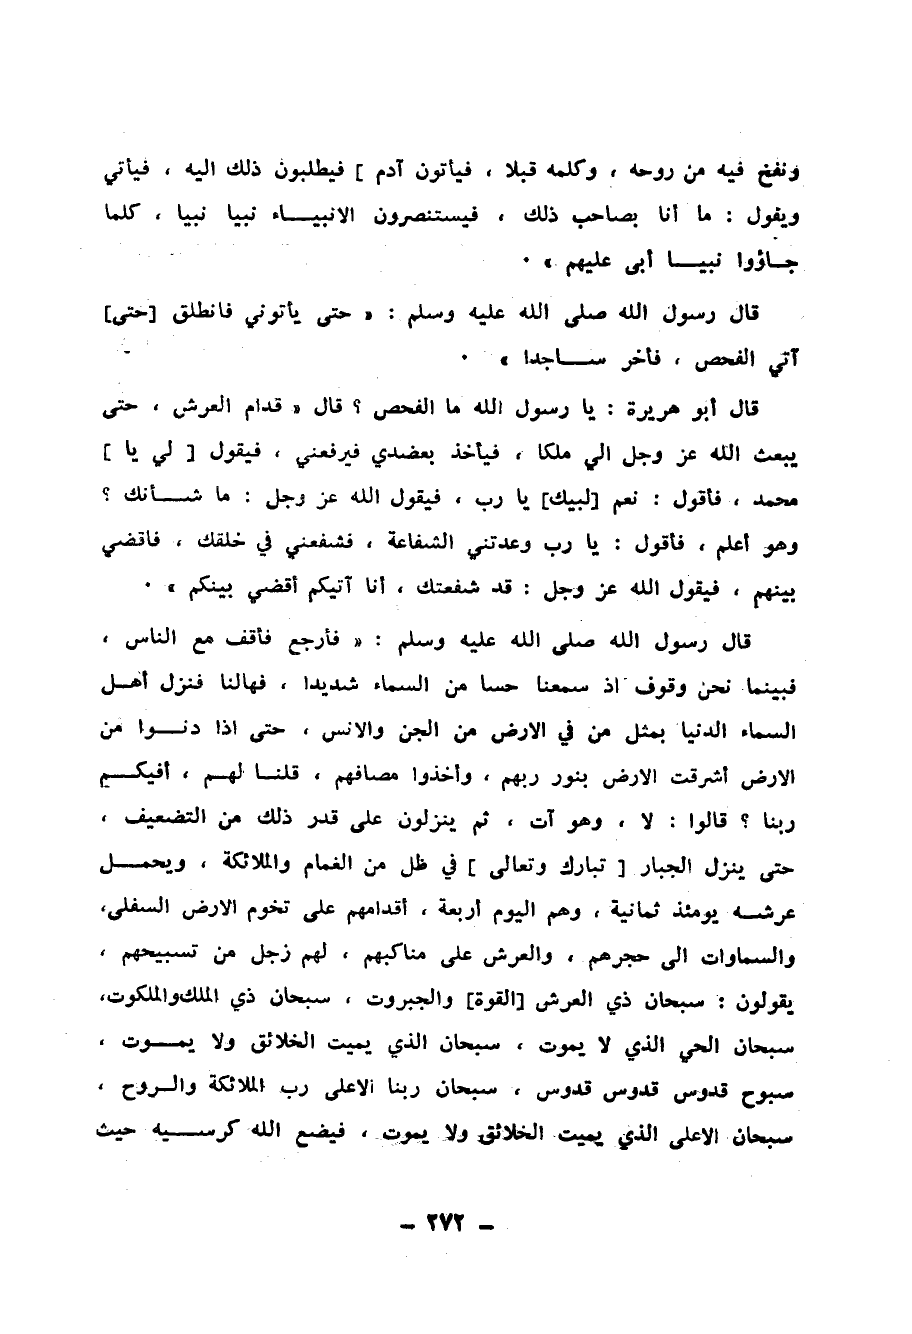 ونفخ فيه من روحه ، وكلمه قبلا ، فيأتون آدم ] فيطلبون ذلك اليه ، فيأتي
ويقول : ما أنا بصاحب ذلك ، فيستنصرون الانبيـــاء نبيا نبيا ، كلما
جـاؤوا نبيـــا أبى عليهم » ٠
قال رسول الله صلى الله عليه وسلم : « حتى يأتوني فانطلق [حتى]
آتي الفحص ، فأخر ســـاجدا » ٠
قال أبو هريرة : يا رسول الله ما الفحص ؟ قال « قدام العرش ، حتى
يبعث الله عز وجل الي ملكا ، فيأخذ بعضدي فيرفعني ، فيقول [ لي يا ]
محمد ، فأقول : نعم [لبيك] يا رب ، فيقول الله عز وجل : ما شـــأنك ؟
وهو أعلم ، فأقول : يا رب وعدتني الشفاعة ، فشفعني في خلقك ، فاقضي
بينهم ، فيقول الله عز وجل : قد شفعتك ، أنا آتيكم أقضي بينكم » ٠
قال رسول الله صلى الله عليه وسلم : « فأرجع فأقف مع الناس ،
فبينما نحن وقوف اذ سمعنا حسا من السماء شديدا ، فهالنا فنزل أهـل
السماء الدنيا بمثل من في الارض من الجن والانس ، حتى اذا دنـــوا من
الارض أشرقت الارض بنور ربهم ، وأخذوا مصافهم ، قلنـا لهـم ، أفيكـــم
ربنا ؟ قالوا : لا ، وهو آت ، ثم ينزلون على قدر ذلك من التضعيف ،
حتى ينزل الجبار [ تبارك وتعالى ] في ظل من الغمام والملائكة ، ويحمـــل
عرشـه يومئذ ثمانية ، وهم اليوم أربعة ، أقدامهم على تخوم الارض السفلى،
والسماوات الى حجرهم ، والعرش على مناكبهم ، لهم زجل من تسبيحهم ،
يقولون : سبحان ذي العرش [القوة] والجبروت ، سبحان ذي الملك والملكوت،
سبحان الحي الذي لا يموت ، سبحان الذي يميت الخلائق ولا يمـــوت ،
سبوح قدوس قدوس قدوس ، سبحان ربنا الاعلى رب الملائكة والـروح ،
سبحان الاعلى الذي يميت الخلائق ولا يموت ، فيضع الله كرســـيه حيث
– ٢٧٢ –